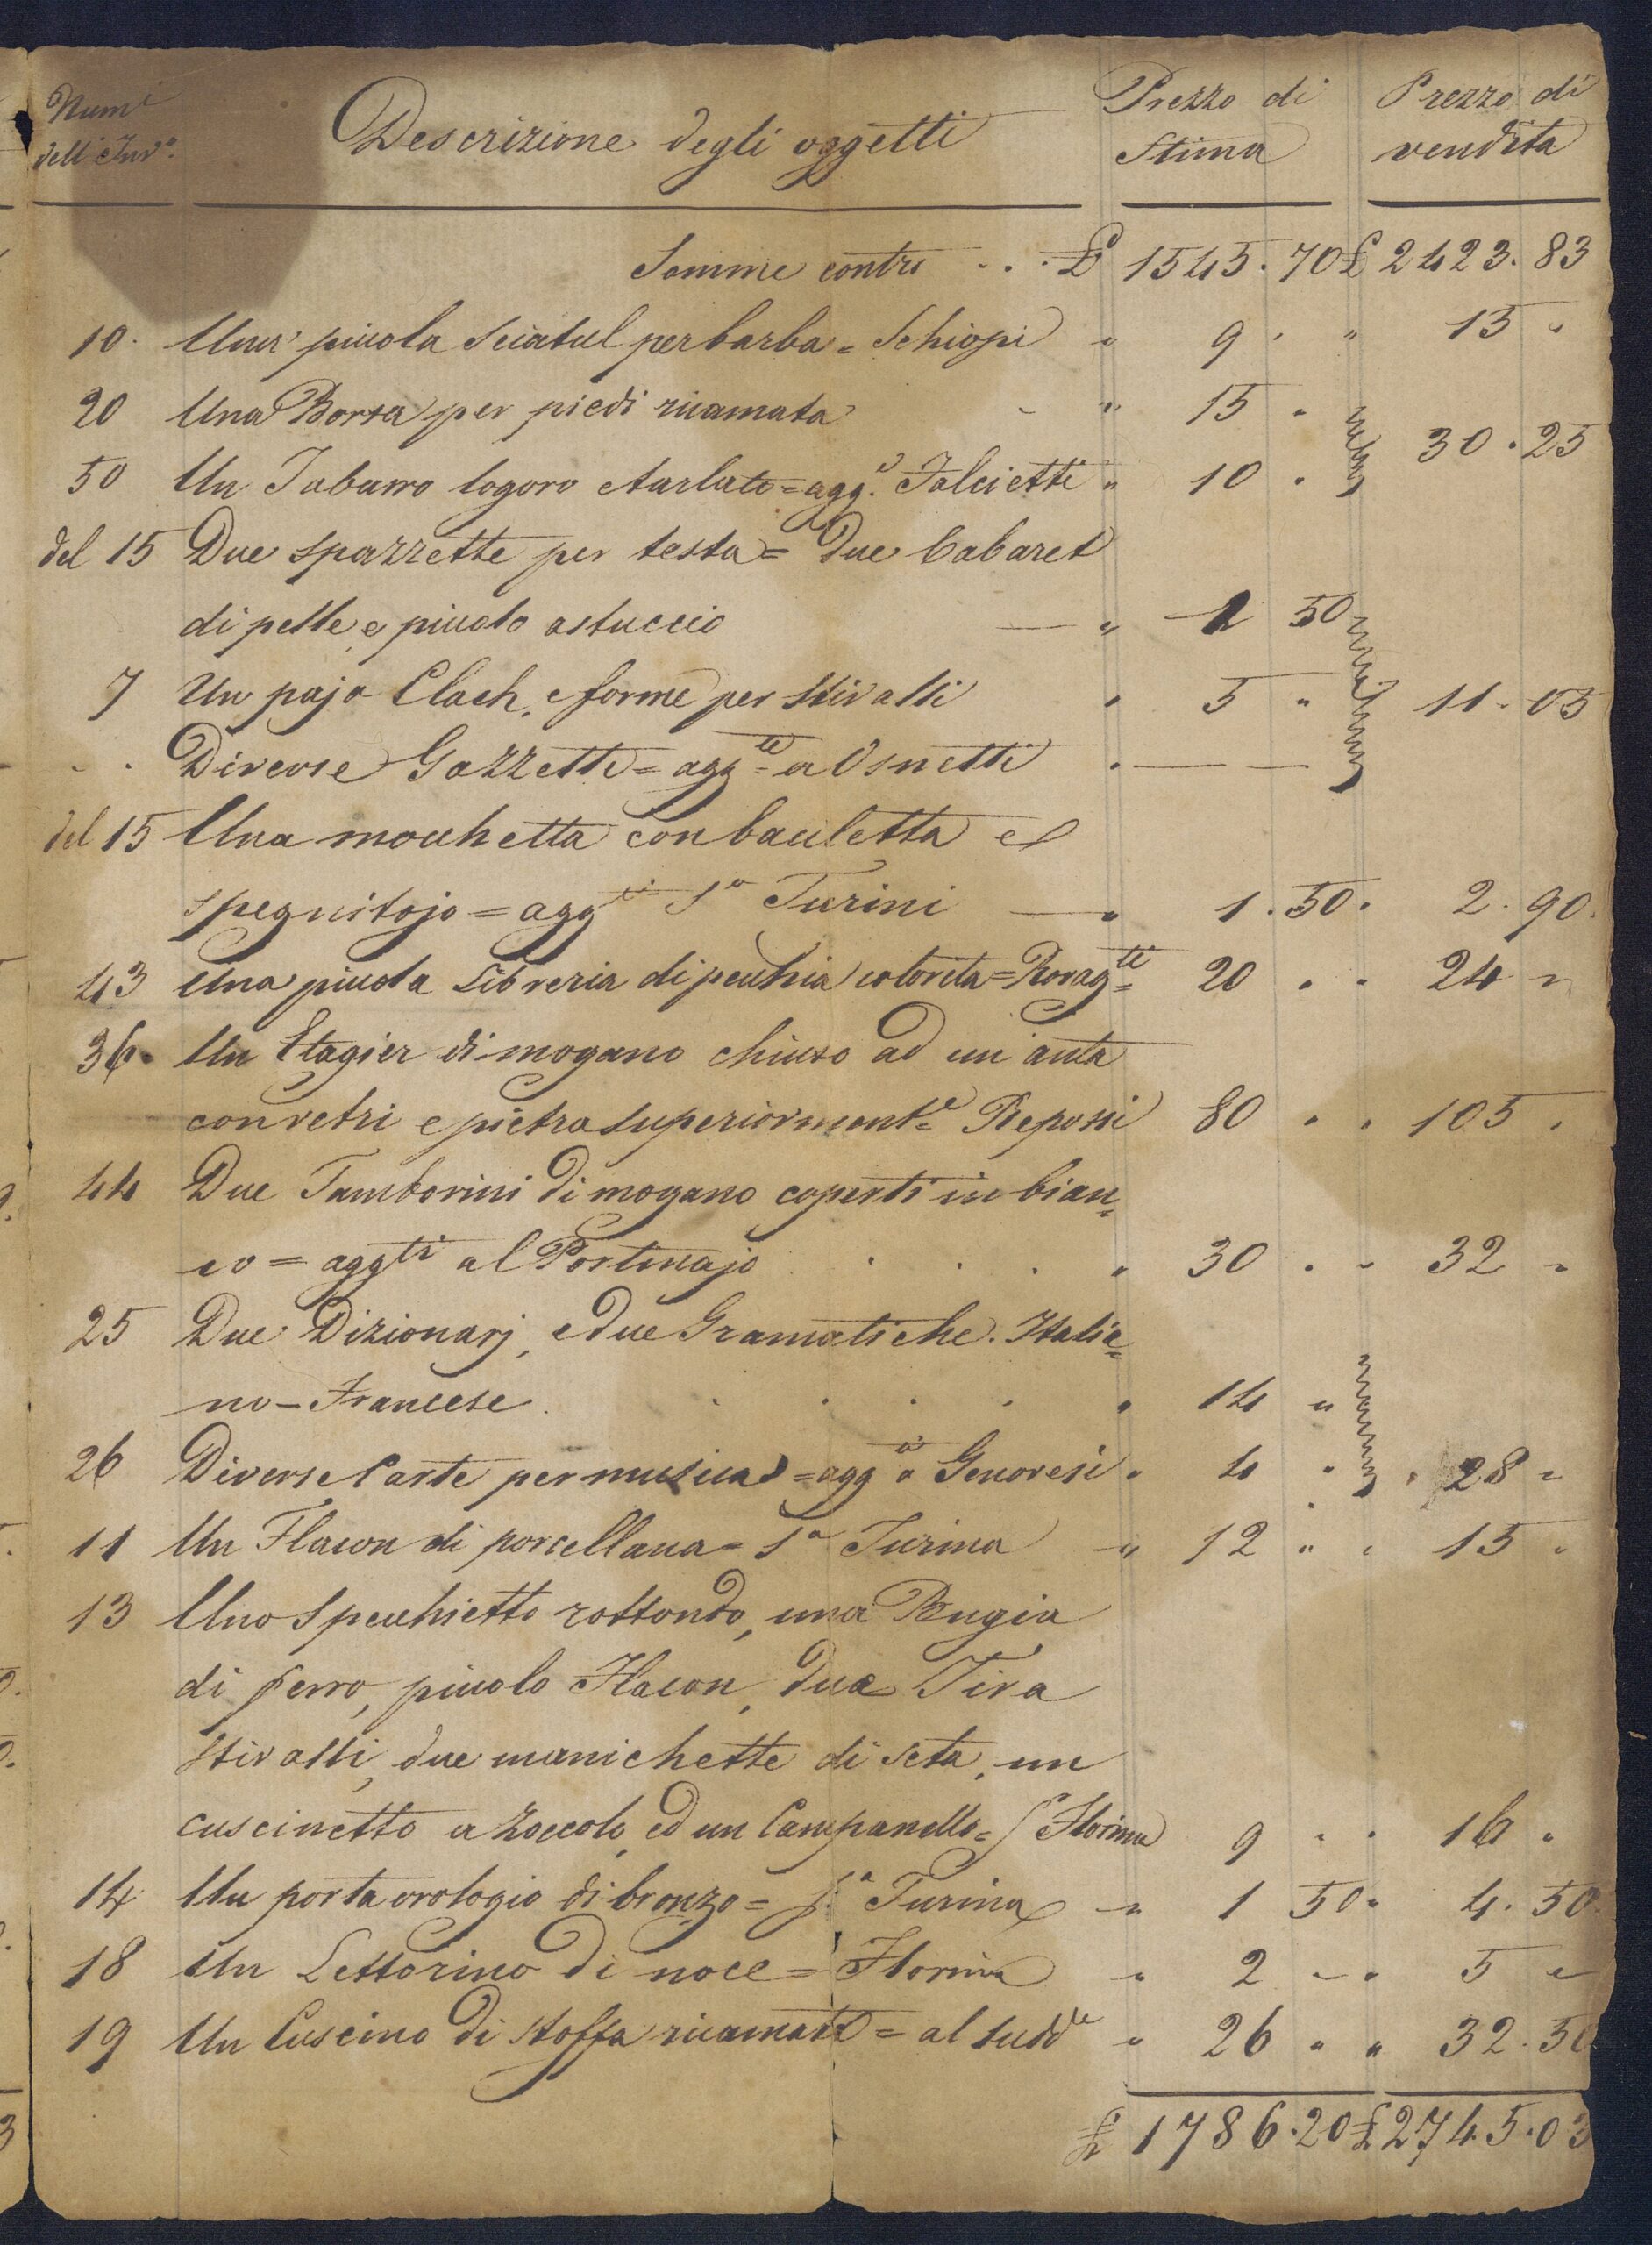 Num.i dell'Inv.o Descrizione degli oggetti Prezzo di Stima Prezzo di vendita
Somme contro . . . £ 1545.70 £ 2423.83
10. Una piccola Sciatul per barba = Schiopi " 9 " " 15 "
20 Una Borsa per piedi ricamata - " 15 "
50 Un Tabarro logoro e tarlato = agg.o Falcietti " 10 " 30.25
del 15 Due spazzette per testa = Due Cabaret
di pelle, e piccolo astuccio — " 1 50
7 Un pajo Clach, e forme per stivalli " 5 " 11.05
" " Diverse Gazzette = agg.te a Osnetti " — —
del 15 Una mochetta con bauletta e
spegnitojo = agg S.a Turini — " 1.50. 2.90.
43 Una piccola Libreria di pecchia colorita = Rovag.ti 20 " " 24 "
36. Un Etagier di mogano chiuso ad un'anta
con vetri e pietra superiorment.e = Repossi 80 " " 105 "
44 Due Tamborini di mogano coperti in bian=
co = agg.ti al Portinajo . . . " 30 " " 32 "
25 Due Dizionarj, e due Gramatiche. Italia=
no – Francese . . . . . " 14 "
26 Diverse Carte per musica = agg a Genovesi " 4 " " 28 "
11 Un Flacon di porcellana = S.a Turina " 12 " " 15 "
13 Uno Specchietto rottondo, una Bugia
di ferro, piccolo Flacon, due Tira
stivalli, due manichette di seta, un
cuscinetto a zoccolo, ed un Campanello = Florina 9 " " 16 "
14 Un porta orologio di bronzo = S.a Turina " 1 50 " 4.50
18 Un Lettorino di noce = Florina " 2 " " 5 "
19 Un Cuscino di stoffa ricamato = al sudd.e " 26 " " 32.50
£ 1786.20 £ 2745.03